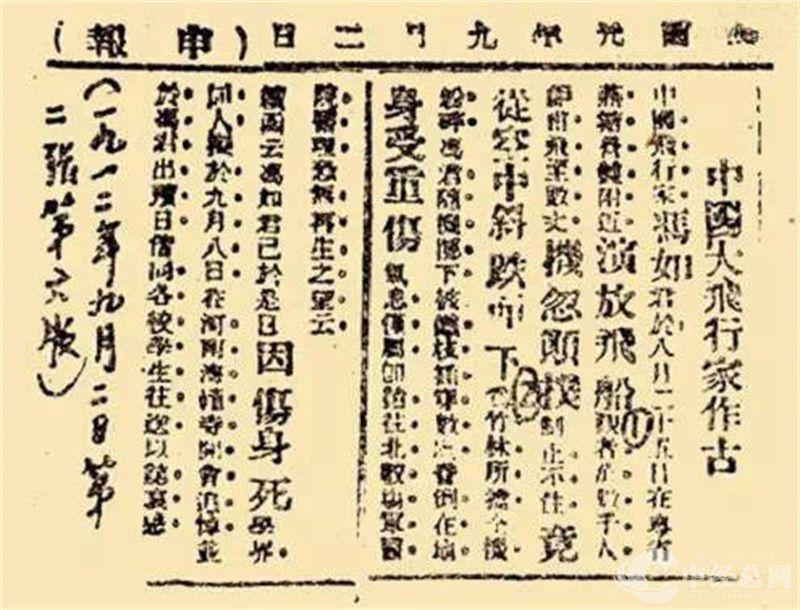 民國元年九月二日（申報）
中國大飛行家作古
中國飛行家馮如君於八月二十五日在粵省
燕塘 附近演放飛船觀者 數千人
飛至數丈機忽頭 制止不住竟
從空中斜跌而下 竹林所擋全機
粉碎馮君隨機 下被 枝 數 昏倒在地
身受重傷氣息僅屬 往北 場軍醫
院醫理 無再生之望云
續函云馮如君已於是日因傷身死學界
同人擬於九月八日在河南海幢寺開會追悼並
於馮君出殯日偕同各校學生往送以誌哀
（一九一二年九月二日第
二張第六版）
中经总网